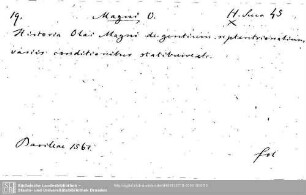 19. Magni, O. H. Suec 45
Historia Olai Magni de gentium septentrionalium
variis conditionibus statibusve etc.
Basileae 1567.
fol
Sächsische Landesbibliothek -
Staats- und Universitätsbibliothek Dresden